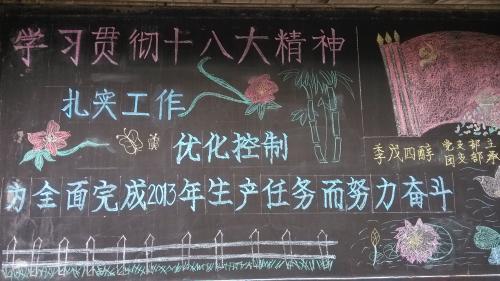 学习贯彻十八大精神
扎实工作
优化控制
为全面完成2013年生产任务而努力奋斗
季戊四醇
党支部主
团支部承